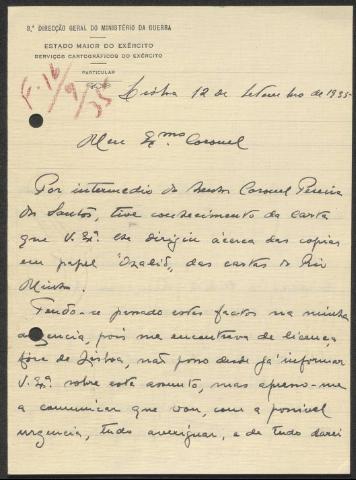 3.ª DIRECÇÃO GERAL DO MINISTÉRIO DA GUERRA
ESTADO MAIOR DO EXÉRCITO
SERVIÇOS CARTOGRÁFICOS DO EXÉRCITO
PARTICULAR
16/9/35
Lisboa 12 de Setembro de 1935
Meu Exmo Coronel
Por intermedio do Senhor Coronel Pereira
dos Santos, tive conhecimento da carta
que V. Exª lhe dirigiu ácerca das copias
em papel "Ozalid", das cartas do Rio
Minho.
Tendo-se passado estes factos na minha
ausencia, pois me encontrava de licença
fóra de Lisboa, não posso desde já informar
V. Exª sobre este assunto, mas apresso-me
a comunicar que vou, com a possivel
urgencia, tudo averiguar, e de tudo darei